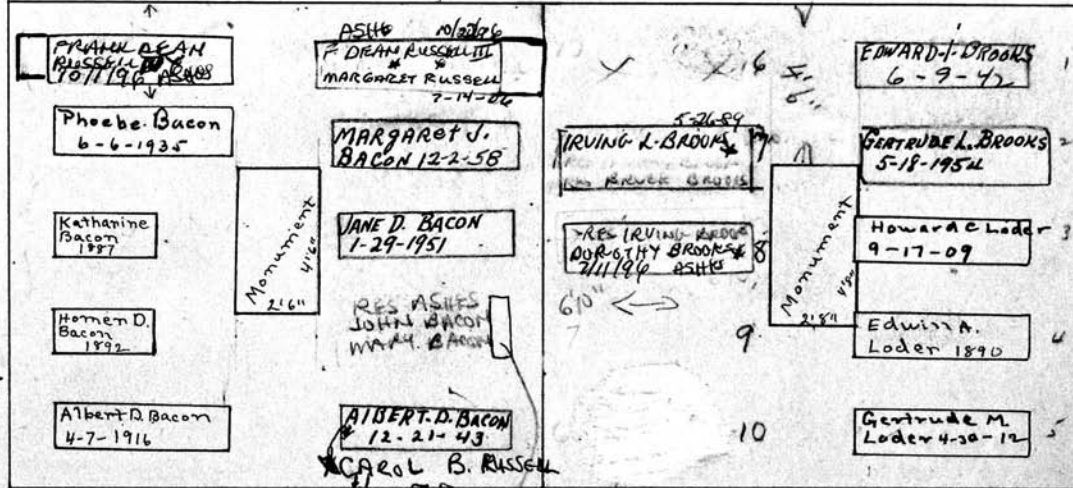 FRANK DEAN
RUSSELL
10/1/96 ASHES
Phoebe Bacon
6-6-1935
Katharine
Bacon
1887
Homen D.
Bacon
1892
Albert D. Bacon
4-7-1916
Monument
4'6"
2'6"
ASHES 10/22/96
F. DEAN RUSSELL III
*
MARGARET RUSSELL
7-14-06
MARGARET J.
BACON 12-2-58
JANE D. BACON
1-29-1951
RES ASHES
JOHN BACON
MARY BACON
ALBERT. D. BACON
12-21-43
CAROL B. RUSSELL
X X 6
5-26-89
IRVING L. BROOKS * 7
BROOKS
RES IRVING BROOKS
DOROTHY BROOKS * 8
7/11/96 ASHES
6'10"
9
10
Monument
2'8"
EDWARD I. BROOKS
6-9-42
1
GERTRUDE L. BROOKS
5-18-1954
2
Howard C Loder
9-17-09
3
Edwin A.
Loder 1890
4
Gertrude M.
Loder 4-30-12
5